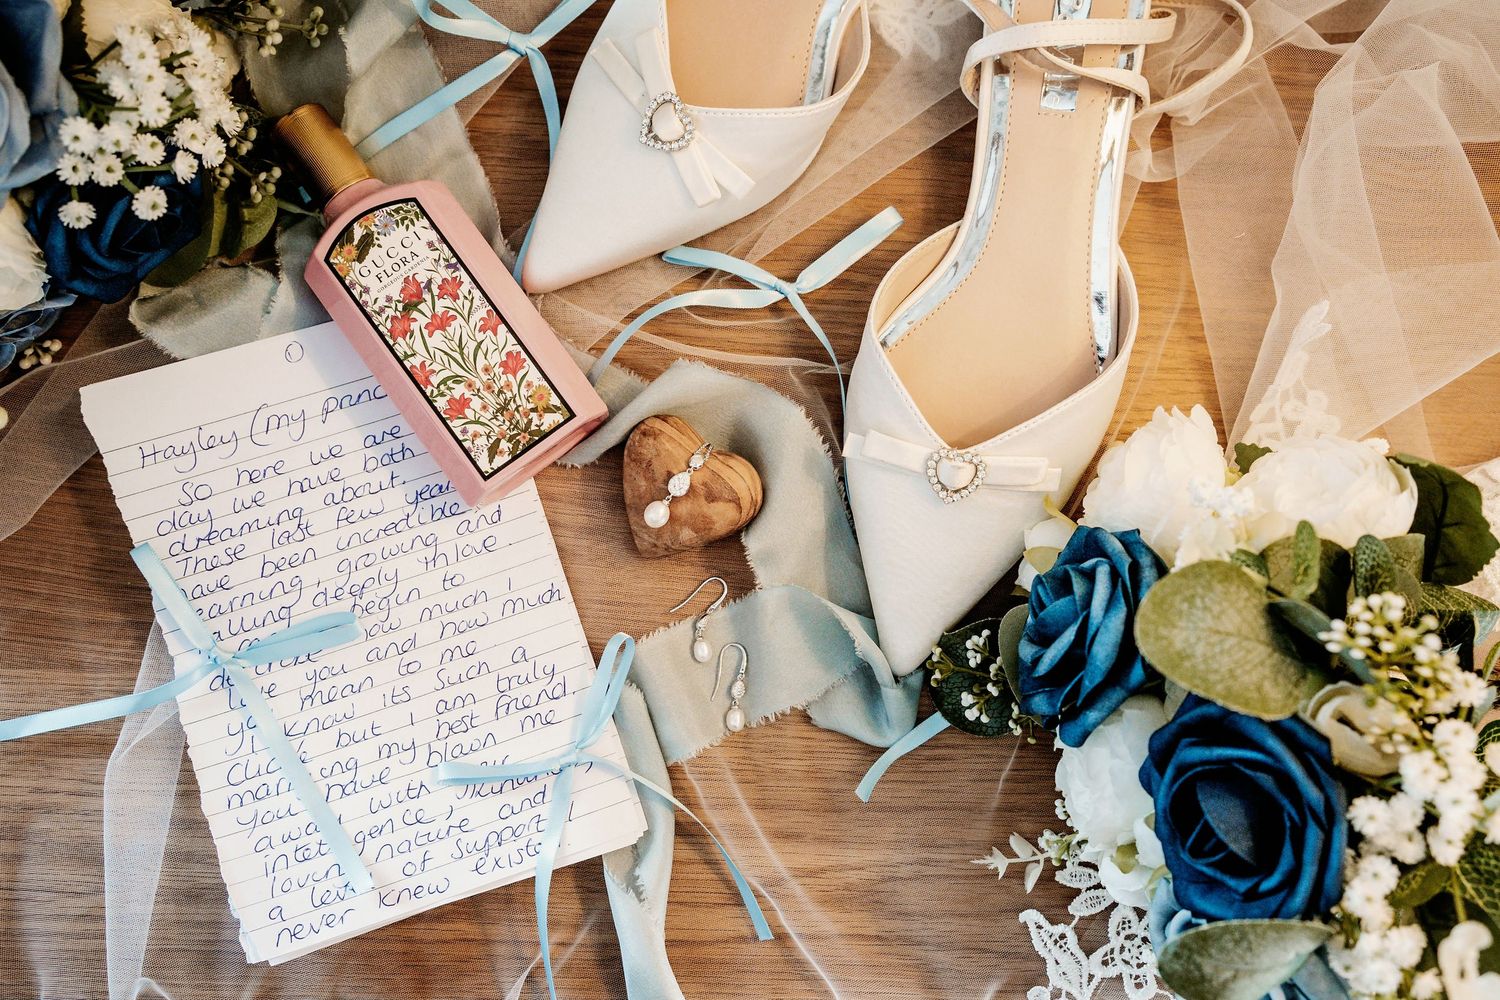 ①
Hayley (my princ
So here we are
day we have both
dreaming about.
These last few year
have been incredible
learning, growing and
falling deeply in love.
begin to
how much I
love you and how much
you mean to me.
I know its such a
cliche but I am truly
marrying my best friend.
You have blown me
away with
intelligence,
loving nature and
a level of support I
never knew existed.
GUCCI
FLORA
GORGEOUS GARDENIA